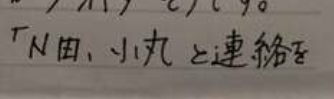 「N田、小丸と連絡を